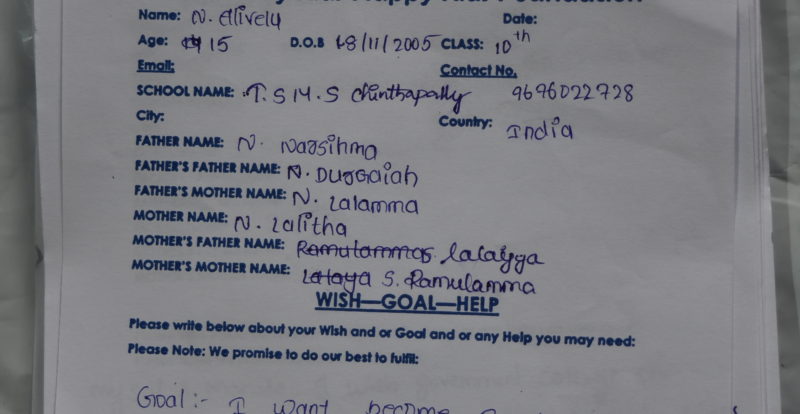 Name: N. Alively Date:
Age: 15 D.O.B 18/11/2005 CLASS: 10th
Email: Contact No.
SCHOOL NAME: T.S M.S Chinthapally 9696022728
City: Country: India
FATHER NAME: N. Narsihma
FATHER'S FATHER NAME: N. Durgaiah
FATHER'S MOTHER NAME: N. Lalamma
MOTHER NAME: N. Lalitha
MOTHER'S FATHER NAME: lalaiyya
MOTHER'S MOTHER NAME: S. Ramulamma
WISH—GOAL—HELP
Please write below about your Wish and or Goal and or any Help you may need:
Please Note: We promise to do our best to fulfil:
Goal :- I want become